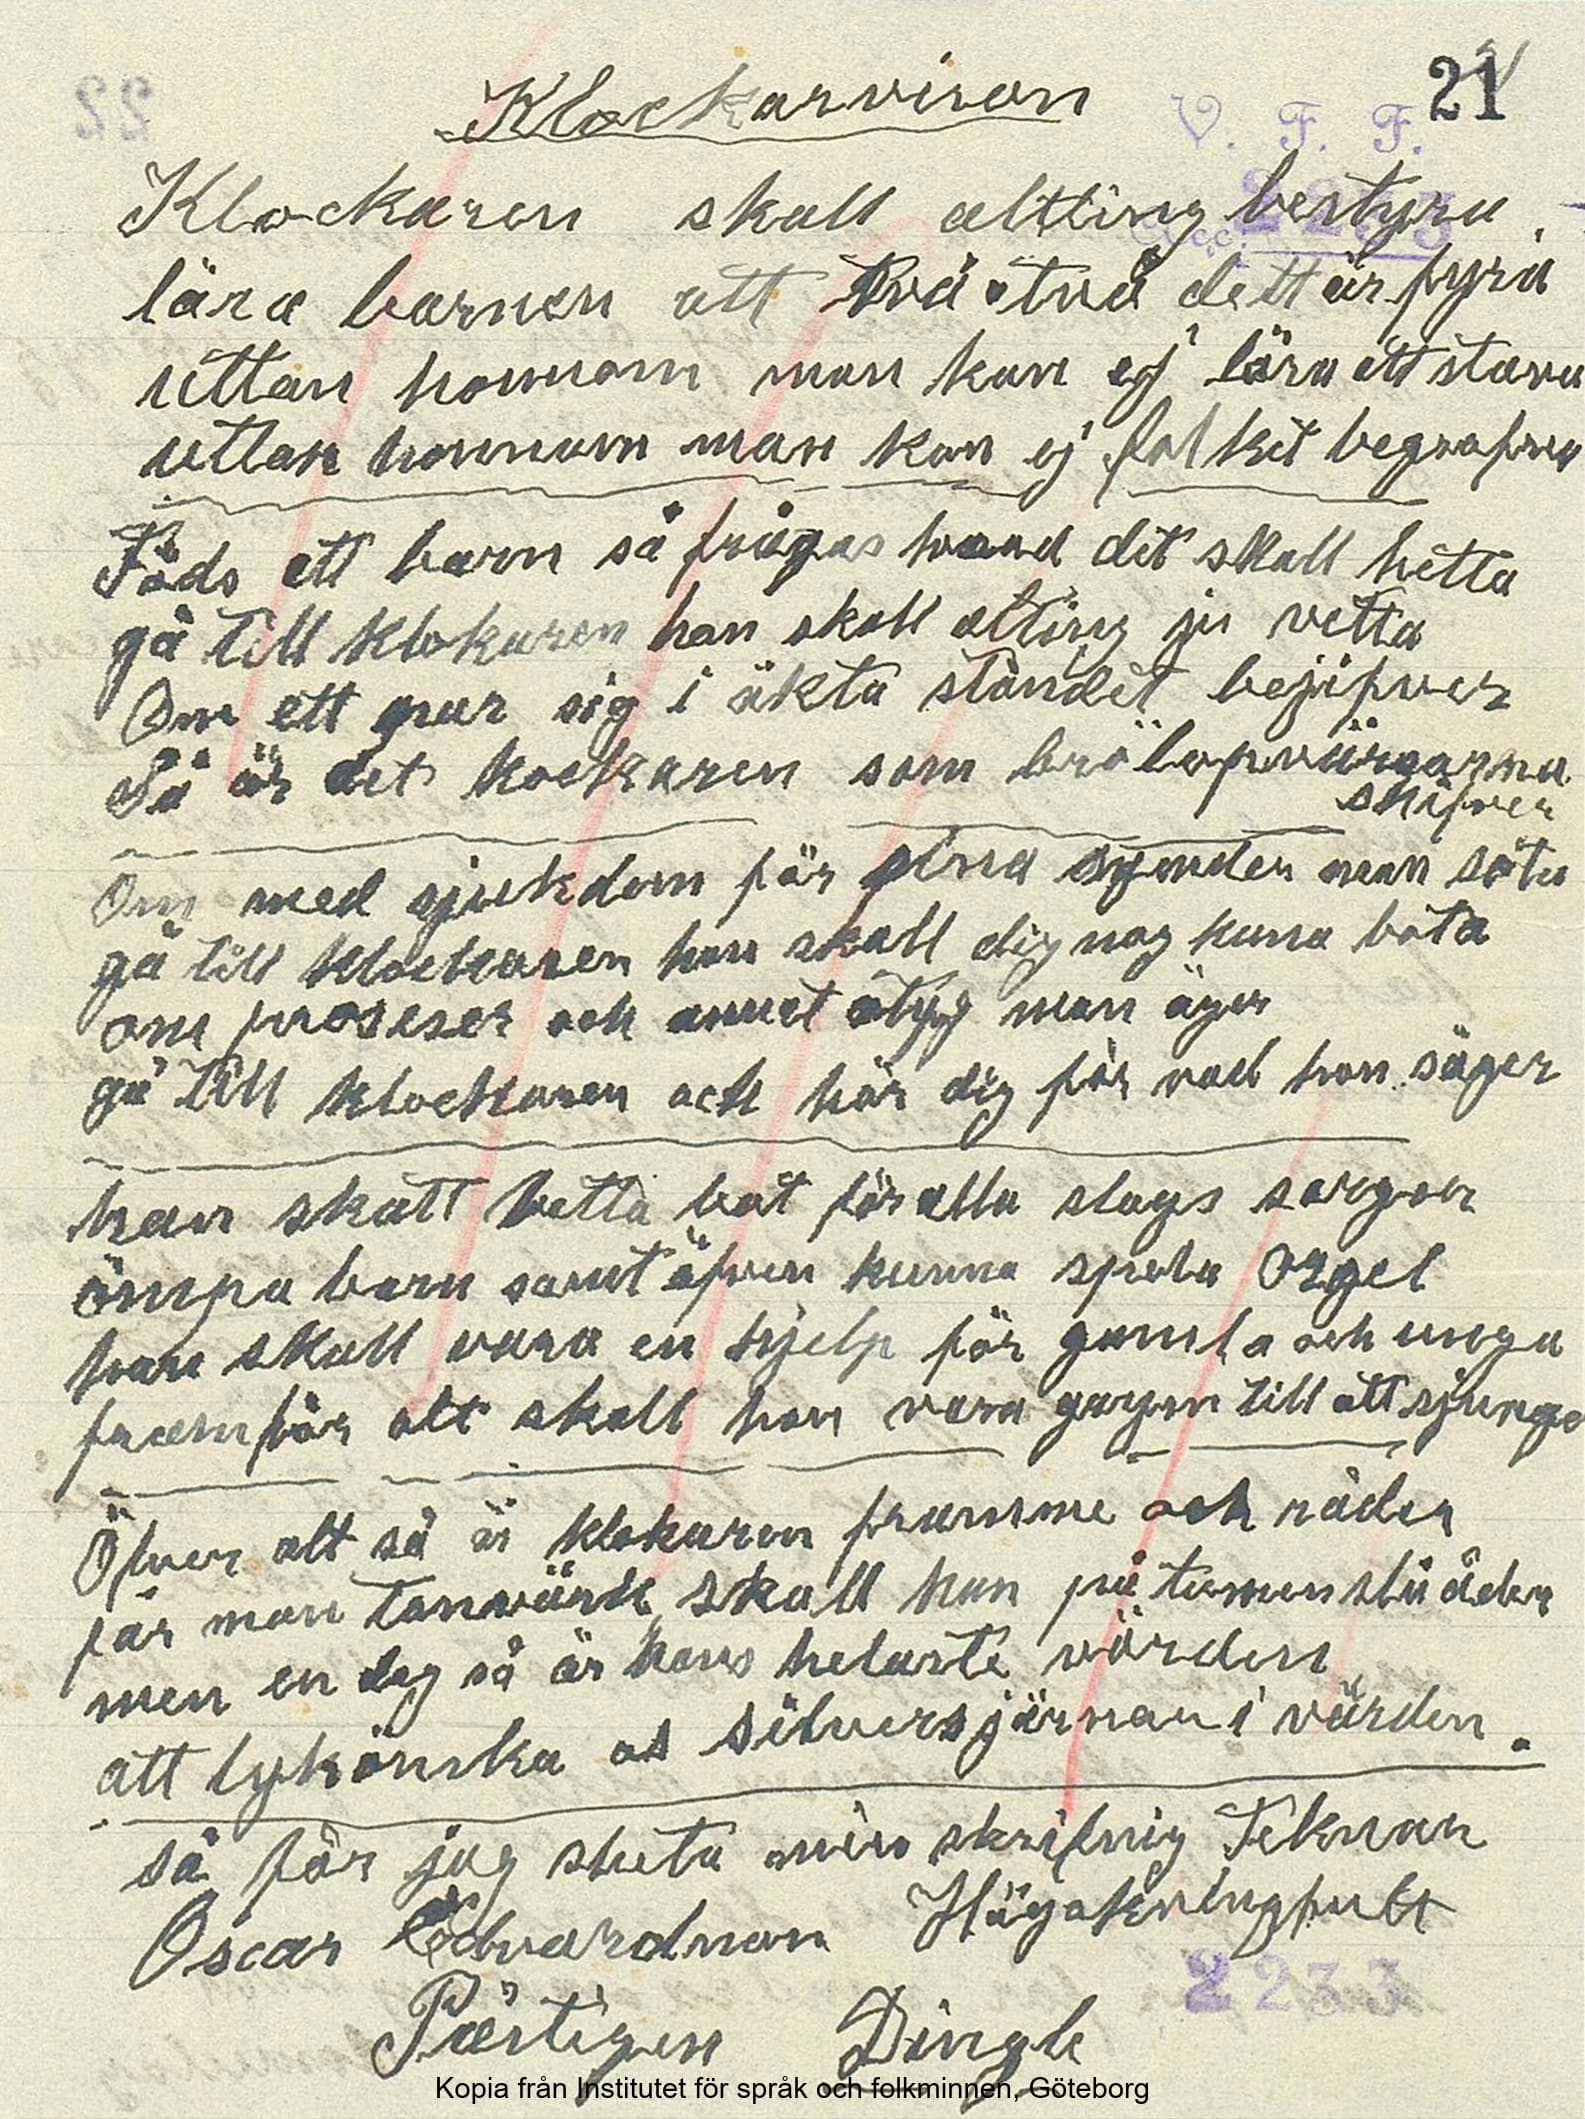 21
V. F. F.
2233
Klockarvisan
Klockaren skall altting bestyra
lära barnen att två o två dett är fyra
uttan honnom man kan ej lära att stava
uttan honnom man kan ej folket begrafva
Föds ett barn så frågas hvad det skall hetta
gå till klokaren han skall alting ju vetta
Om ett par sig i äkta ståndet bejifver
Så är det kockaren som
skifver
Om med sjukdom för sina synder man söta
gå till klockaren han skall dig nog kuna bota
om proseser och annat otyg man äger
gå till klockaren och hör dig för vad han säger
han skall vetta bot för alla slags sorger
ömpa barn samt äfven kunna spela Orgel
han skall vara en hjelp för gamla och unga
framför alt skall han vara gagm till att sjunga
Öfver alt så är klokaren framme och råder
får man tanvärk skall han på tumen slå åder
men en dag så är hans helaste värden
att lykönska os silversjärnan i värden.
så får jag sluta min skrifnig Teknar
Oscar Edvardman
Färtigen Dingle
2233
Kopia från Institutet för språk och folkminnen, Göteborg